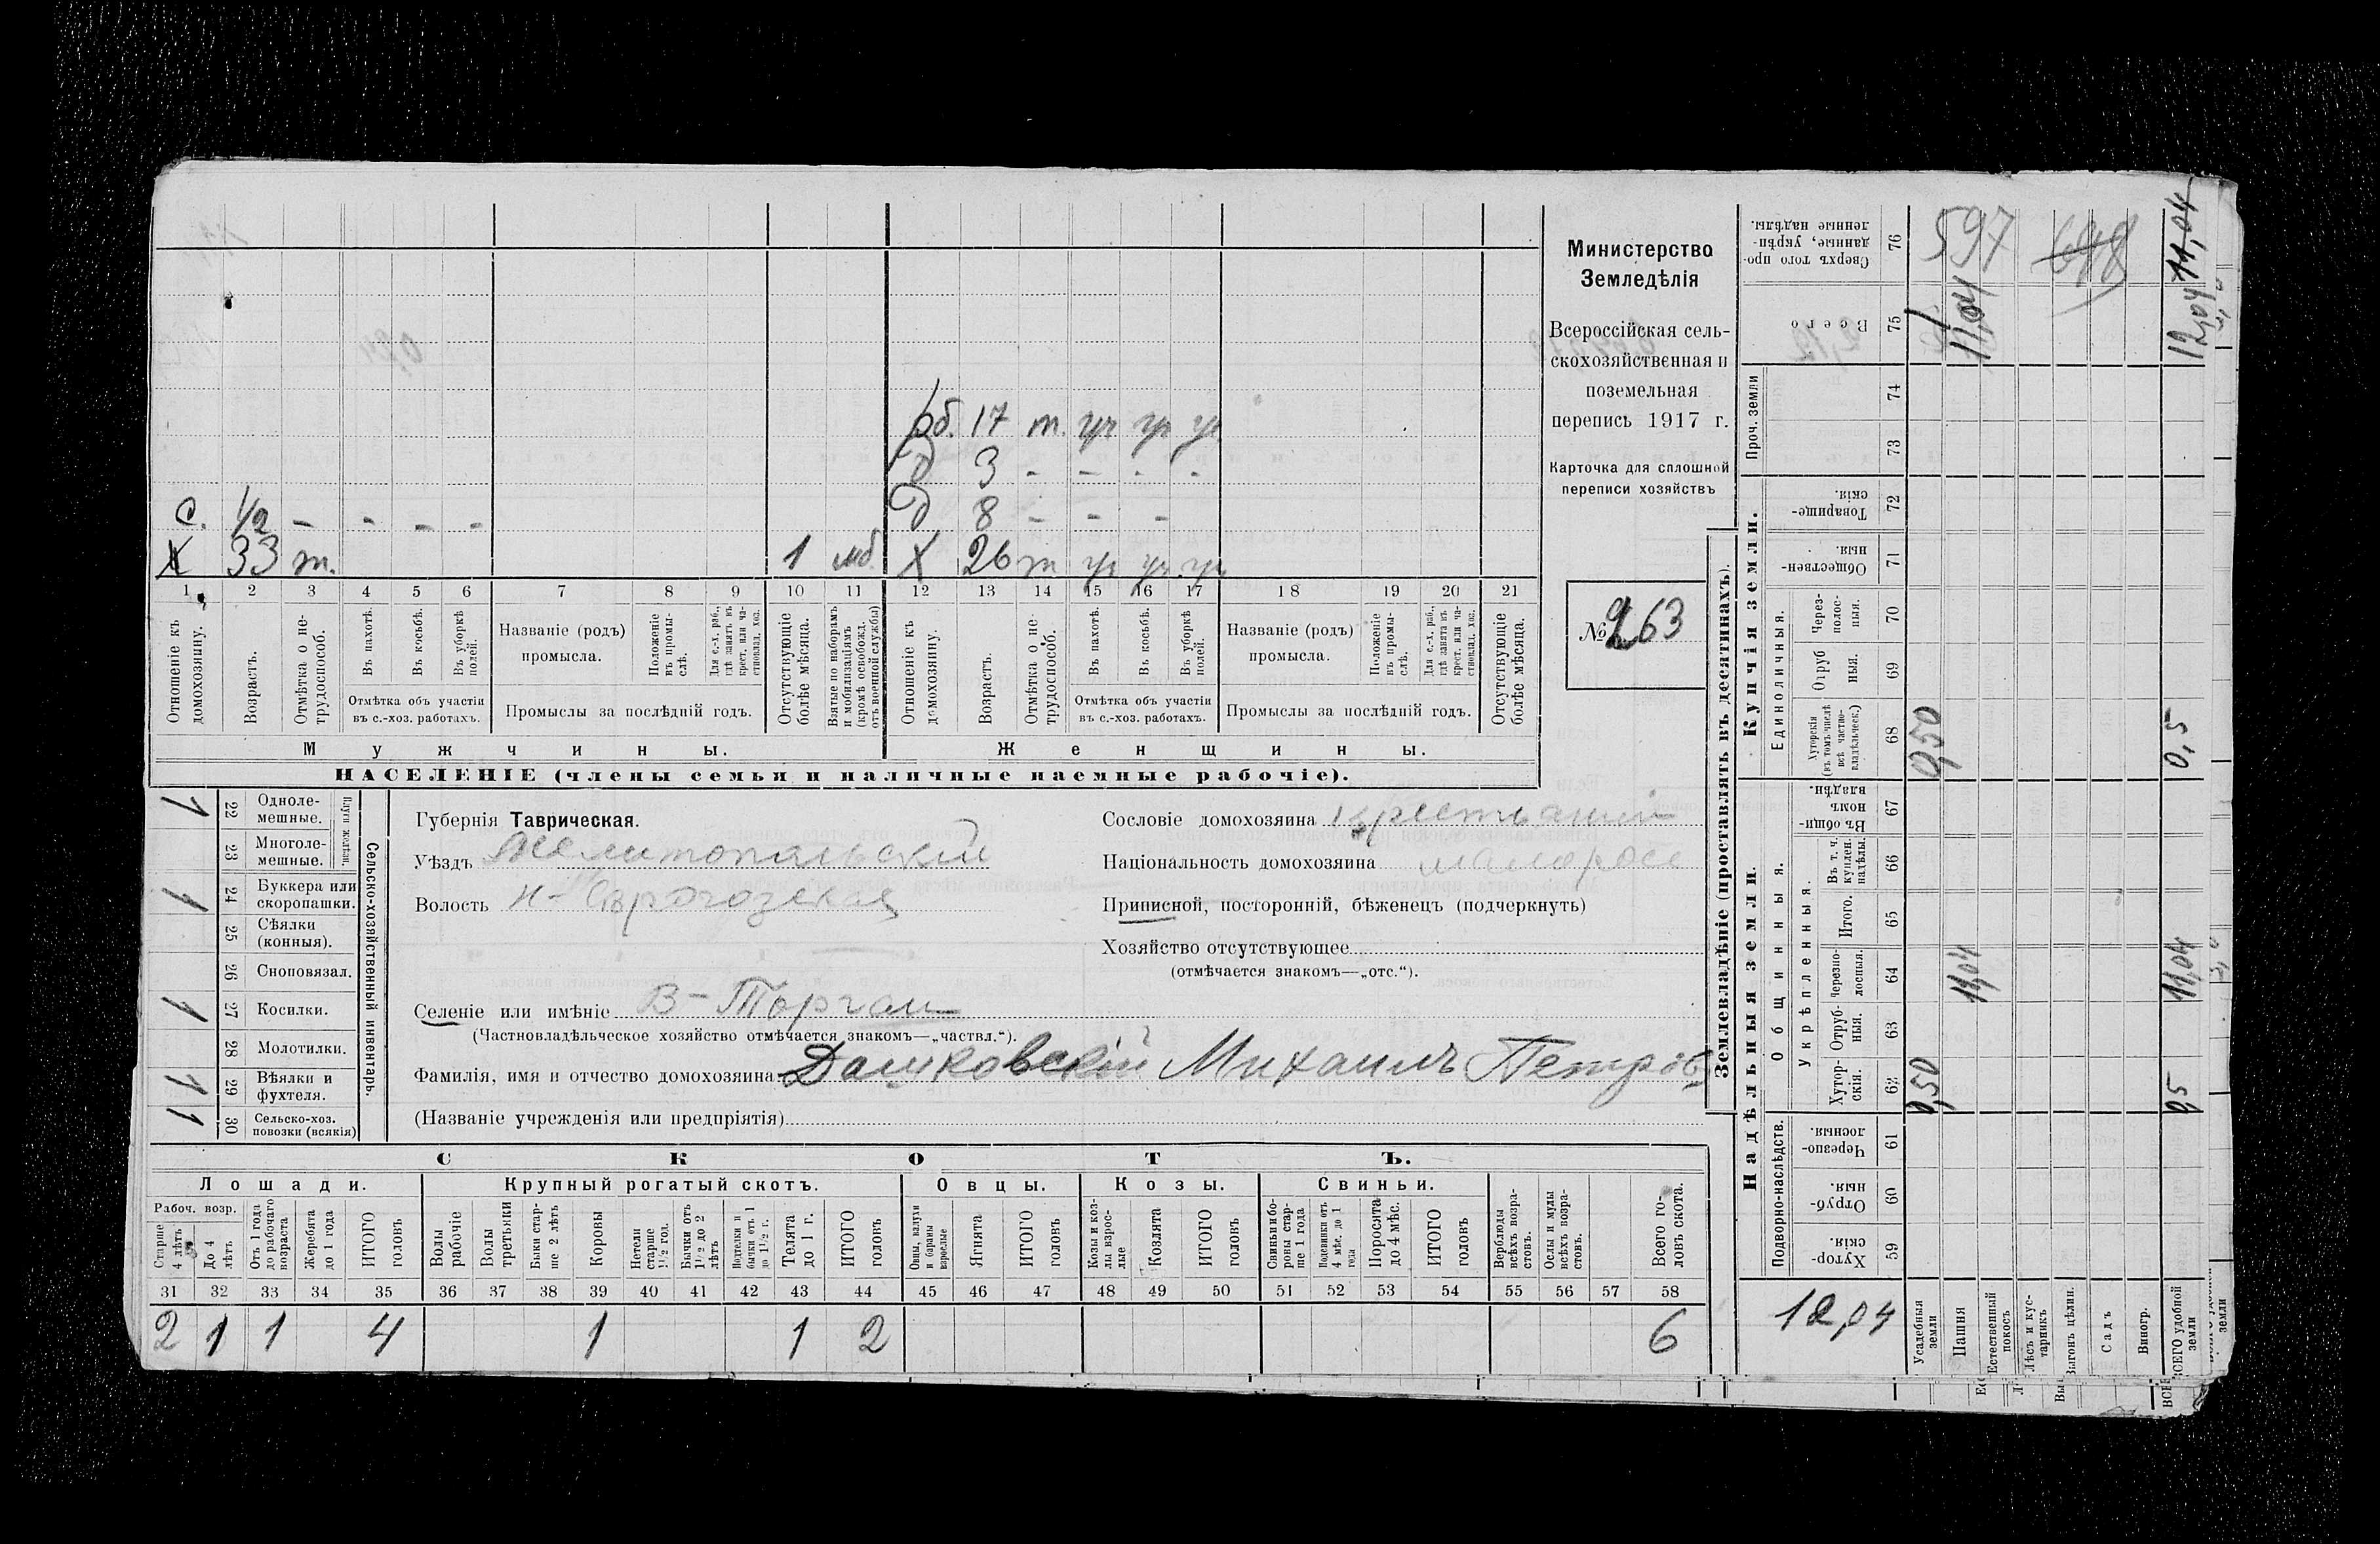 рб. 17 т. уч уч уч
д 3 - - - -
с. 1/2 - - - - д 8 - - -
х 33 т. 1 мб х 26 т уч уч. уч
1 2 3 4 5 6 7 8 9 10 11 12 13 14 15 16 17 18 19 20 21
Отношеніе къ домохозяину.
Возрастъ.
Отмѣтка о нетрудоспособ.
Въ пахотѣ.
Въ косьбѣ.
Въ уборкѣ полей.
Отмѣтка объ участіи въ с.-хоз. работахъ.
Названіе (родъ) промысла.
Положеніе въ промыслѣ.
Для с.-х. раб., гдѣ занятъ въ крест. или частновлад. хоз.
Промыслы за послѣдній годъ.
Отсутствующіе болѣе мѣсяца.
Взятые по наборамъ и мобилизаціямъ (кромѣ освобожд. отъ военной службы)
Отношеніе къ домохозяину.
Возрастъ.
Отмѣтка о нетрудоспособ.
Въ пахотѣ.
Въ косьбѣ.
Въ уборкѣ полей.
Отмѣтка объ участіи въ с.-хоз. работахъ.
Названіе (родъ) промысла.
Положеніе въ промыслѣ.
Для с.-х. раб., гдѣ занята въ крест. или частновлад. хоз.
Промыслы за послѣдній годъ.
Отсутствующіе болѣе мѣсяца.
Мужчины. Женщины.
НАСЕЛЕНІЕ (члены семьи и наличные наемные рабочіе).
Министерство
Земледѣлія
Всероссійская сель-
скохозяйственная и
поземельная
перепись 1917 г.
Карточка для сплошной
переписи хозяйствъ
№ 263
Сельско-хозяйственный инвентарь.
Плуги желѣзн.
1 22 Одноле-мешные.
23 Многоле-мешные.
1 24 Буккера или скоропашки.
25 Сѣялки (конныя).
26 Сноповязал.
1 27 Косилки.
28 Молотилки.
1 29 Вѣялки и фухтеля.
1 30 Сельско-хоз. повозки (всякія)
Губернія Таврическая.
Уѣздъ Мелитопольскій
Волость Н-Сѣрогозская
Селеніе или имѣніе В-Торгаи
(Частновладѣльческое хозяйство отмѣчается знакомъ—„частвл.“).
Фамилія, имя и отчество домохозяина Дашковскій Михаилъ Петров
(Названіе учрежденія или предпріятія)
Сословіе домохозяина крестьянин
Національность домохозяина малоросс
Приписной, посторонній, бѣженецъ (подчеркнуть)
Хозяйство отсутствующее
(отмѣчается знакомъ—„отс.“).
СКОТЪ.
Лошади. Крупный рогатый скотъ. Овцы. Козы. Свиньи.
Рабоч. возр.
Старше 4 лѣтъ
До 4 лѣтъ
Отъ 1 года до рабочаго возраста
Жеребята до 1 года
ИТОГО головъ
Волы рабочіе
Волы третьяки
Быки старше 2 лѣтъ
Коровы
Нетели старше 1 1/2 год.
Бычки отъ 1 1/2 до 2 лѣтъ
Подтелки и бычки отъ 1 до 1 1/2 г.
Телята до 1 г.
ИТОГО головъ
Овцы, валухи и бараны взрослые
Ягнята
ИТОГО головъ
Козы и козлы взрослые
Козлята
ИТОГО головъ
Свиньи и боровы старше 1 года
Подсвинки отъ 4 мѣс. до 1 года
Поросята до 4 мѣс.
ИТОГО головъ
Верблюды всѣхъ возрастовъ.
Ослы и мулы всѣхъ возрастовъ.
Всего головъ скота.
31 32 33 34 35 36 37 38 39 40 41 42 43 44 45 46 47 48 49 50 51 52 53 54 55 56 57 58
2 1 1 4 1 1 2 6
Землевладѣніе (проставлять въ десятинахъ).
Надѣльныя земли. Купчія земли. Проч. земли
Подворно-наслѣдств.
Общинныя.
Укрѣпленныя.
Единоличныя.
Хуторскія. 59
Отрубныя. 60
Черезполосныя. 61
Хуторскія. 62
Отрубныя. 63
Черезполосныя. 64
Итого. 65
Въ т. ч. куплен. надѣлы. 66
Въ общинномъ владѣн. 67
Хуторскія (въ томъ числѣ всѣ частновладѣльческ.) 68
Отрубныя. 69
Черезполосныя. 70
Общественныя. 71
Товарищескія. 72
73
74
Всего 75
Сверхъ того проданные, укрѣпленные надѣлы. 76
12,04
Усадебныя земли 0,50 0,50
Пашня 11,04 11,04
Естественный покосъ
Лѣсъ и кустарникъ
Выгонъ цѣлин.
Садъ
Виногр.
ВСЕГО удобной земли 0,5 11,04 0,5 12,04 11,04
597
648